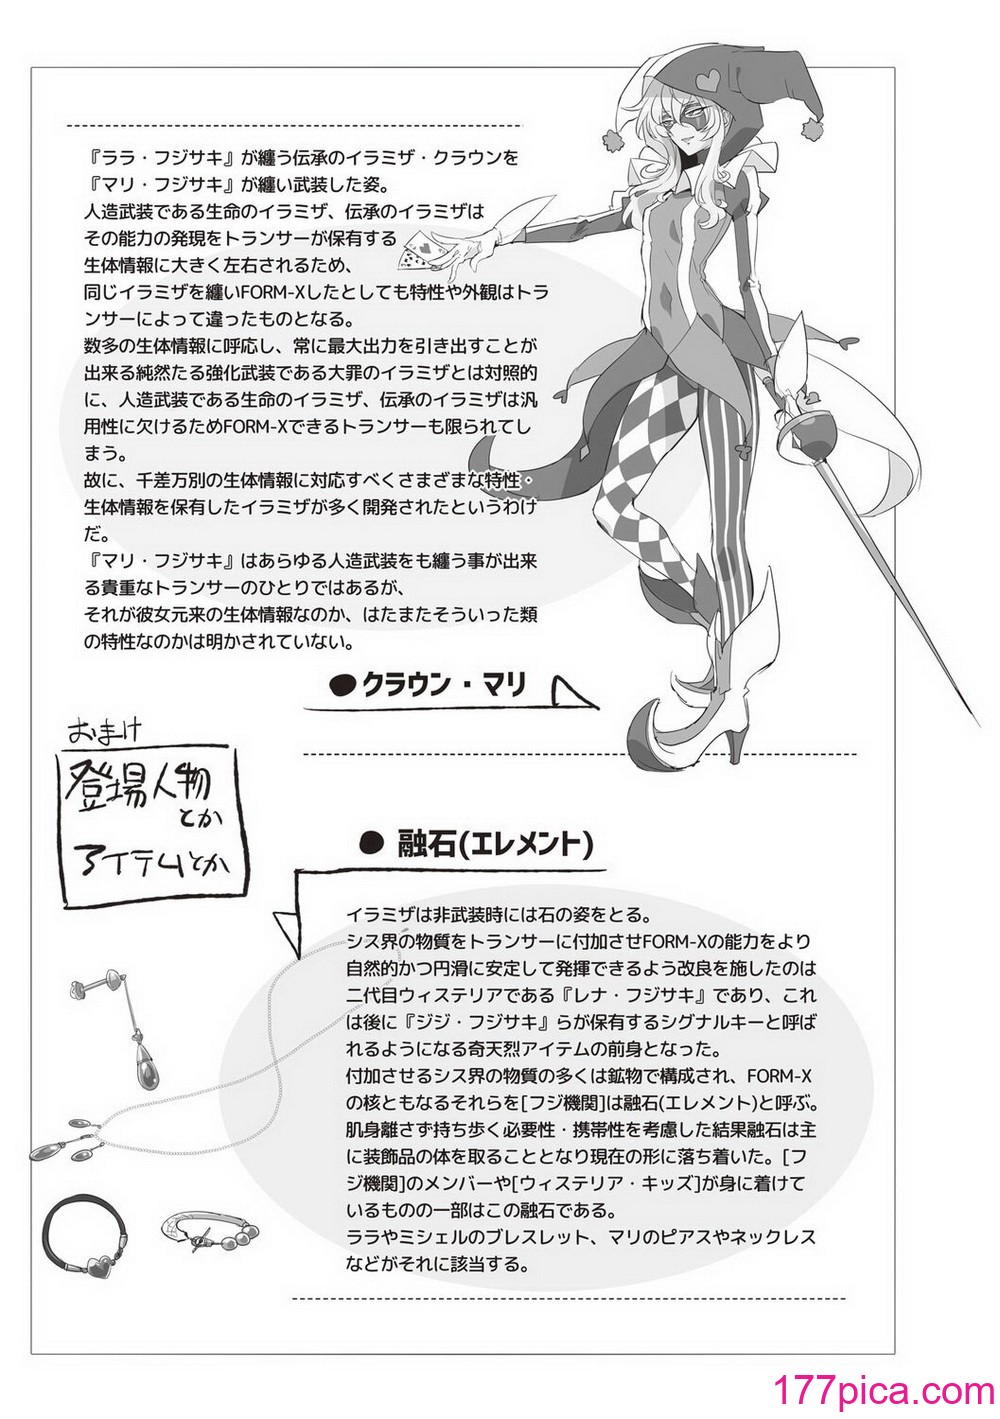 『ララ・フジサキ』が纏う伝承のイラミザ・クラウンを
『マリ・フジサキ』が纏い武装した姿。
人造武装である生命のイラミザ、伝承のイラミザは
その能力の発現をトランサーが保有する
生体情報に大きく左右されるため、
同じイラミザを纏いFORM-Xしたとしても特性や外観はトラ
ンサーによって違ったものとなる。
数多の生体情報に呼応し、常に最大出力を引き出すことが
出来る純然たる強化武装である大罪のイラミザとは対照的
に、人造武装である生命のイラミザ、伝承のイラミザは汎
用性に欠けるためFORM-Xできるトランサーも限られてし
まう。
故に、千差万別の生体情報に対応すべくさまざまな特性・
生体情報を保有したイラミザが多く開発されたというわけ
だ。
『マリ・フジサキ』はあらゆる人造武装をも纏う事が出来
る貴重なトランサーのひとりではあるが、
それが彼女元来の生体情報なのか、はたまたそういった類
の特性なのかは明かされていない。
●クラウン・マリ
おまけ
登場人物
とか
アイテムとか
● 融石(エレメント)
イラミザは非武装時には石の姿をとる。
シス界の物質をトランサーに付加させFORM-Xの能力をより
自然的かつ円滑に安定して発揮できるよう改良を施したのは
二代目ウィステリアである『レナ・フジサキ』であり、これ
は後に『ジジ・フジサキ』らが保有するシグナルキーと呼ば
れるようになる奇天烈アイテムの前身となった。
付加させるシス界の物質の多くは鉱物で構成され、FORM-X
の核ともなるそれらを[フジ機関]は融石(エレメント)と呼ぶ。
肌身離さず持ち歩く必要性・携帯性を考慮した結果融石は主
に装飾品の体を取ることとなり現在の形に落ち着いた。[フ
ジ機関]のメンバーや[ウィステリア・キッズ]が身に着けて
いるものの一部はこの融石である。
ララやミシェルのブレスレット、マリのピアスやネックレス
などがそれに該当する。
177pica.com